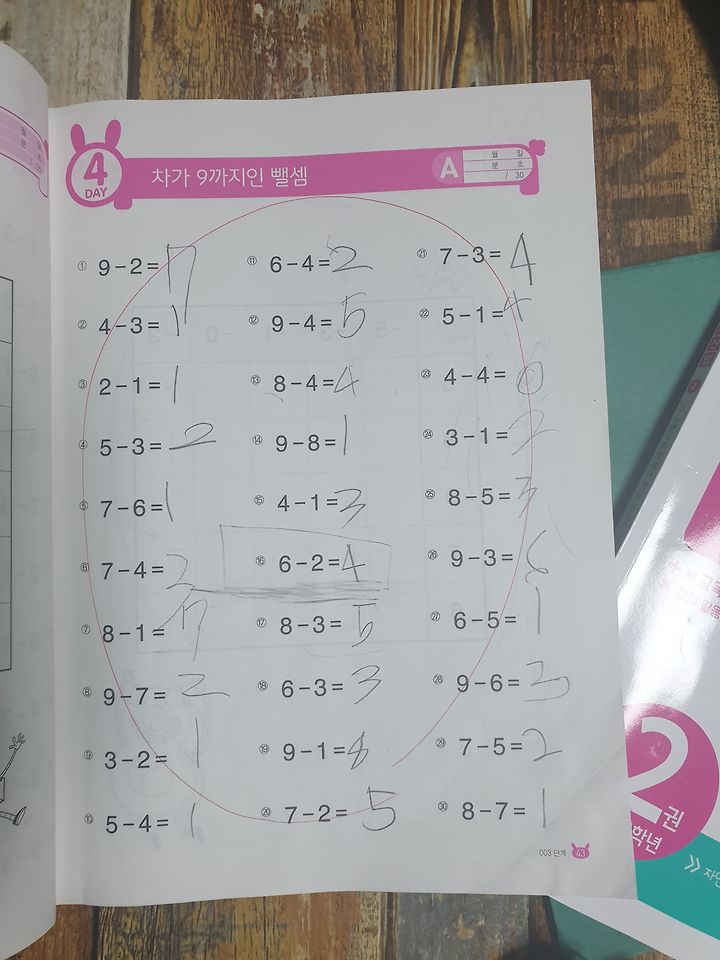 4
DAY
차가 9까지인 뺄셈
A
월 일
분 초
/ 30
① 9-2=7
② 4-3=1
③ 2-1=1
④ 5-3=2
⑤ 7-6=1
⑥ 7-4=3
⑦ 8-1=7
⑧ 9-7=2
⑨ 3-2=1
⑩ 5-4=1
⑪ 6-4=2
⑫ 9-4=5
⑬ 8-4=4
⑭ 9-8=1
⑮ 4-1=3
⑯ 6-2=4
⑰ 8-3=5
⑱ 6-3=3
⑲ 9-1=8
⑳ 7-2=5
㉑ 7-3=4
㉒ 5-1=4
㉓ 4-4=0
㉔ 3-1=2
㉕ 8-5=3
㉖ 9-3=6
㉗ 6-5=1
㉘ 9-6=3
㉙ 7-5=2
㉚ 8-7=1
003 단계 43
2권
학년